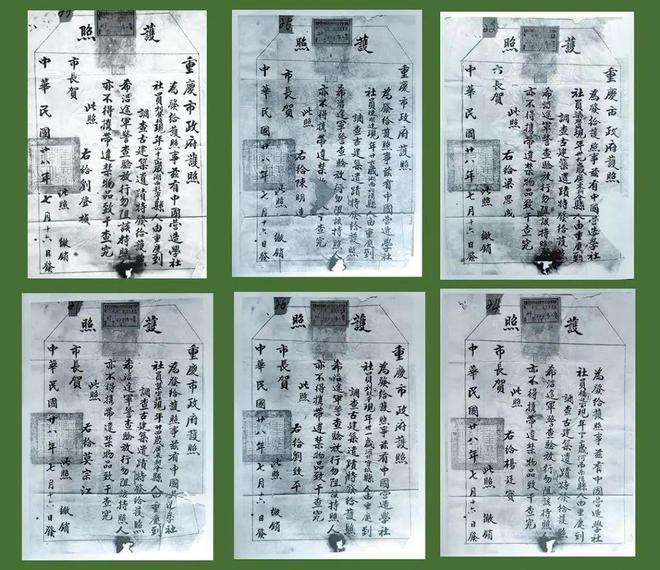 護照
重慶市政府護照
為發給護照事茲有中國營造學社
社員 現年 歲 縣人由重慶到
調查古建築遺蹟特發給護照
希沿途軍警查驗放行勿阻該持照人
亦不得攜帶違禁物品致干查究
此照
右給劉敦楨
市長賀
此照 繳銷
中華民國廿八年七月十六日發
護照
重慶市政府護照
為發給護照事茲有中國營造學社
社員陳明達現年廿 歲湖南 縣人由重慶到
調查古建築遺蹟特發給護照
希沿途軍警查驗放行勿阻該持照人
亦不得攜帶違禁物品致干查究
此照
右給陳明達
市長賀
此照 繳銷
中華民國廿八年七月十六日發
護照
重慶市政府護照
為發給護照事茲有中國營造學社
社員梁思成現年 歲廣東新會縣人由重慶到
調查古建築遺蹟特發給護照
希沿途軍警查驗放行勿阻該持照人
亦不得攜帶違禁物品致干查究
此照
右給梁思成
市長賀
此照 繳銷
中華民國廿八年七月十六日發
護照
重慶市政府護照
為發給護照事茲有中國營造學社
社員莫宗江現年廿四歲廣東新會縣人由重慶到
調查古建築遺蹟特發給護照
希沿途軍警查驗放行勿阻該持照人
亦不得攜帶違禁物品致干查究
此照
右給莫宗江
市長賀
此照 繳銷
中華民國廿八年七月十六日發
護照
重慶市政府護照
為發給護照事茲有中國營造學社
社員劉致平現年 歲 縣人由重慶到
調查古建築遺蹟特發給護照
希沿途軍警查驗放行勿阻該持照人
亦不得攜帶違禁物品致干查究
此照
右給劉致平
市長賀
此照 繳銷
中華民國廿八年七月十六日發
護照
重慶市政府護照
為發給護照事茲有中國營造學社
社員楊廷寶現年 歲河南南陽縣人由重慶到
調查古建築遺蹟特發給護照
希沿途軍警查驗放行勿阻該持照人
亦不得攜帶違禁物品致干查究
此照
右給楊廷寶
市長賀
此照 繳銷
中華民國廿八年七月十六日發